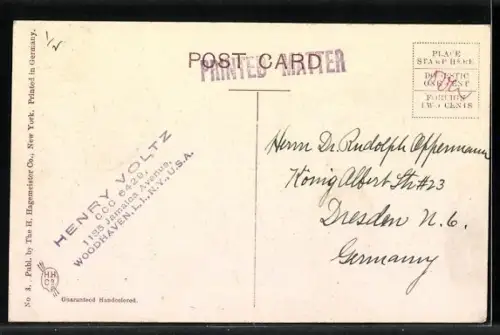 POST CARD
PRINTED MATTER
PLACE
STAMP HERE
DOMESTIC
ONE CENT
FOREIGN
TWO CENTS
No 4. Publ. by The H. Hagemeister Co., New York. Printed in Germany.
HENRY VOLTZ
CCO 6429.
1195 Jamaica Avenue,
WOODHAVEN, L.I., N.Y., U.S.A.
Herrn Dr. Rudolph Oppermann
König Albert Str #23
Dresden N. 6.
Germany
HH
Co
Guaranteed Handcolored.